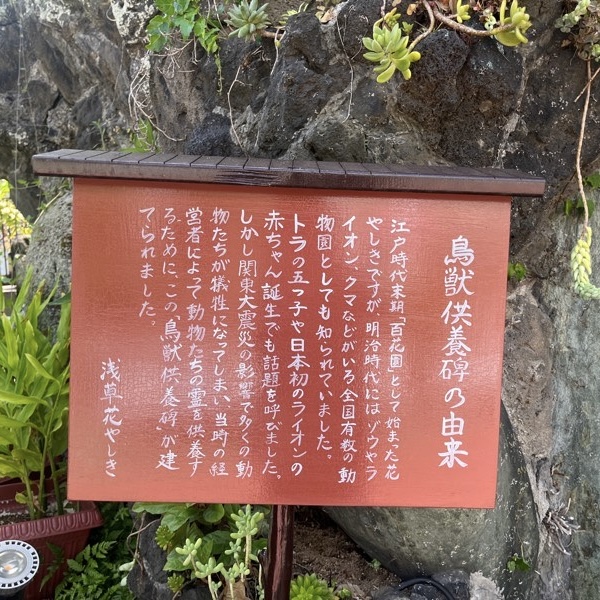 鳥獣供養碑の由来
江戸時代末期「百花園」として始まった花
やしきですが、明治時代にはゾウやラ
イオン、クマなどがいる全国有数の動
物園としても知られていました。
トラの五つ子や日本初のライオンの
赤ちゃん誕生でも話題を呼びました。
しかし関東大震災の影響で多くの動
物たちが犠牲になってしまい、当時の経
営者によって動物たちの霊を供養す
るために、この「鳥獣供養碑」が建
てられました。
浅草花やしき